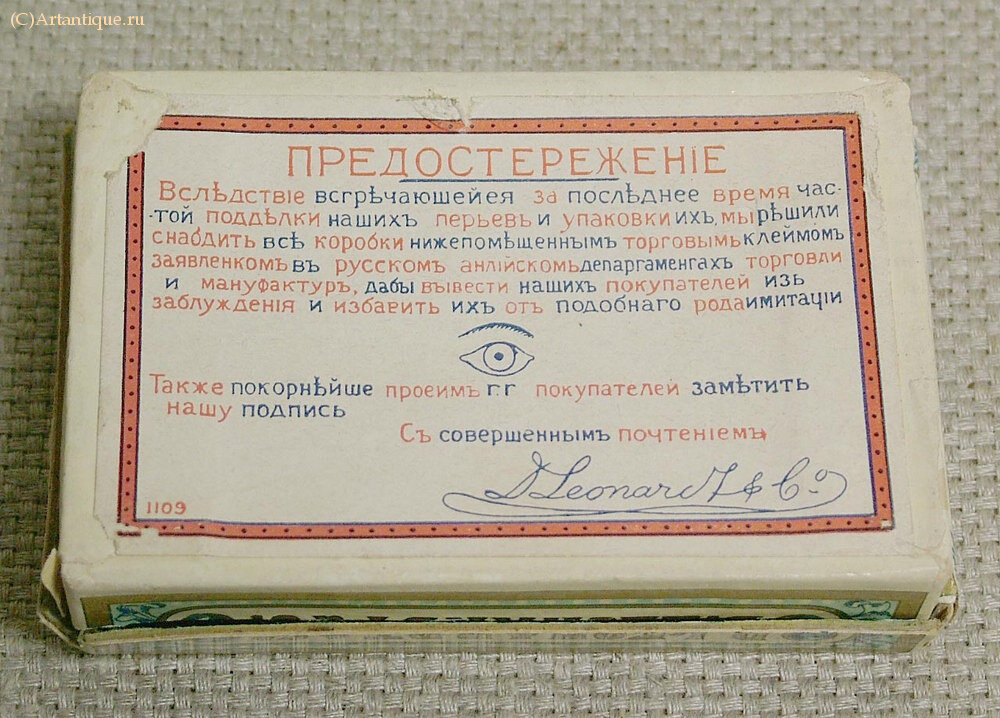 (C)Artantique.ru
ПРЕДОСТЕРЕЖЕНІЕ
Вслѣдствіе всгрѣчающейея за послѣднее время час-
-той поддѣлки нашихъ перьевъ и упаковки ихъ, мы рѣшили
снабдить всѣ коробки нижепомѣщеннымъ торговымъ клеймомъ
заявленкомъ въ русскомъ анлійскомъ депаргаменгахъ торговли
и мануфактуръ, дабы вывести нашихъ покупателей изь
заблужденія и избавить ихъ отъ подобнаго рода имитаціи
Также покорнѣйше проеимъ г.г покупателей замѣтить
нашу подпись
Съ совершеннымъ почтеніемъ,
D Leonardt & Co
1109